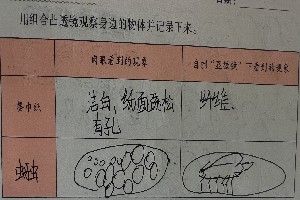 用组合凸透镜观察身边的物体并记录下来。
肉眼看到的现象
自制“显微镜”下看到的现象
餐巾纸
洁白，纸面疏松
有孔
纤维
蚜虫